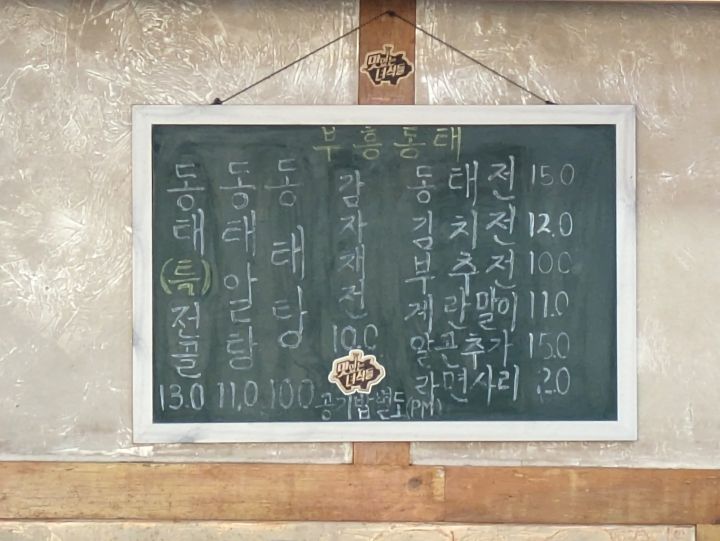 맛있는
녀석들
부흥동태
동태(특)전골 13.0
동태알탕 11.0
동태탕 10.0
감자채전 10.0
동태전 15.0
김치전 12.0
부추전 10.0
계란말이 11.0
알곤추가 15.0
라면사리 2.0
맛있는
녀석들
공기밥별도(PM)